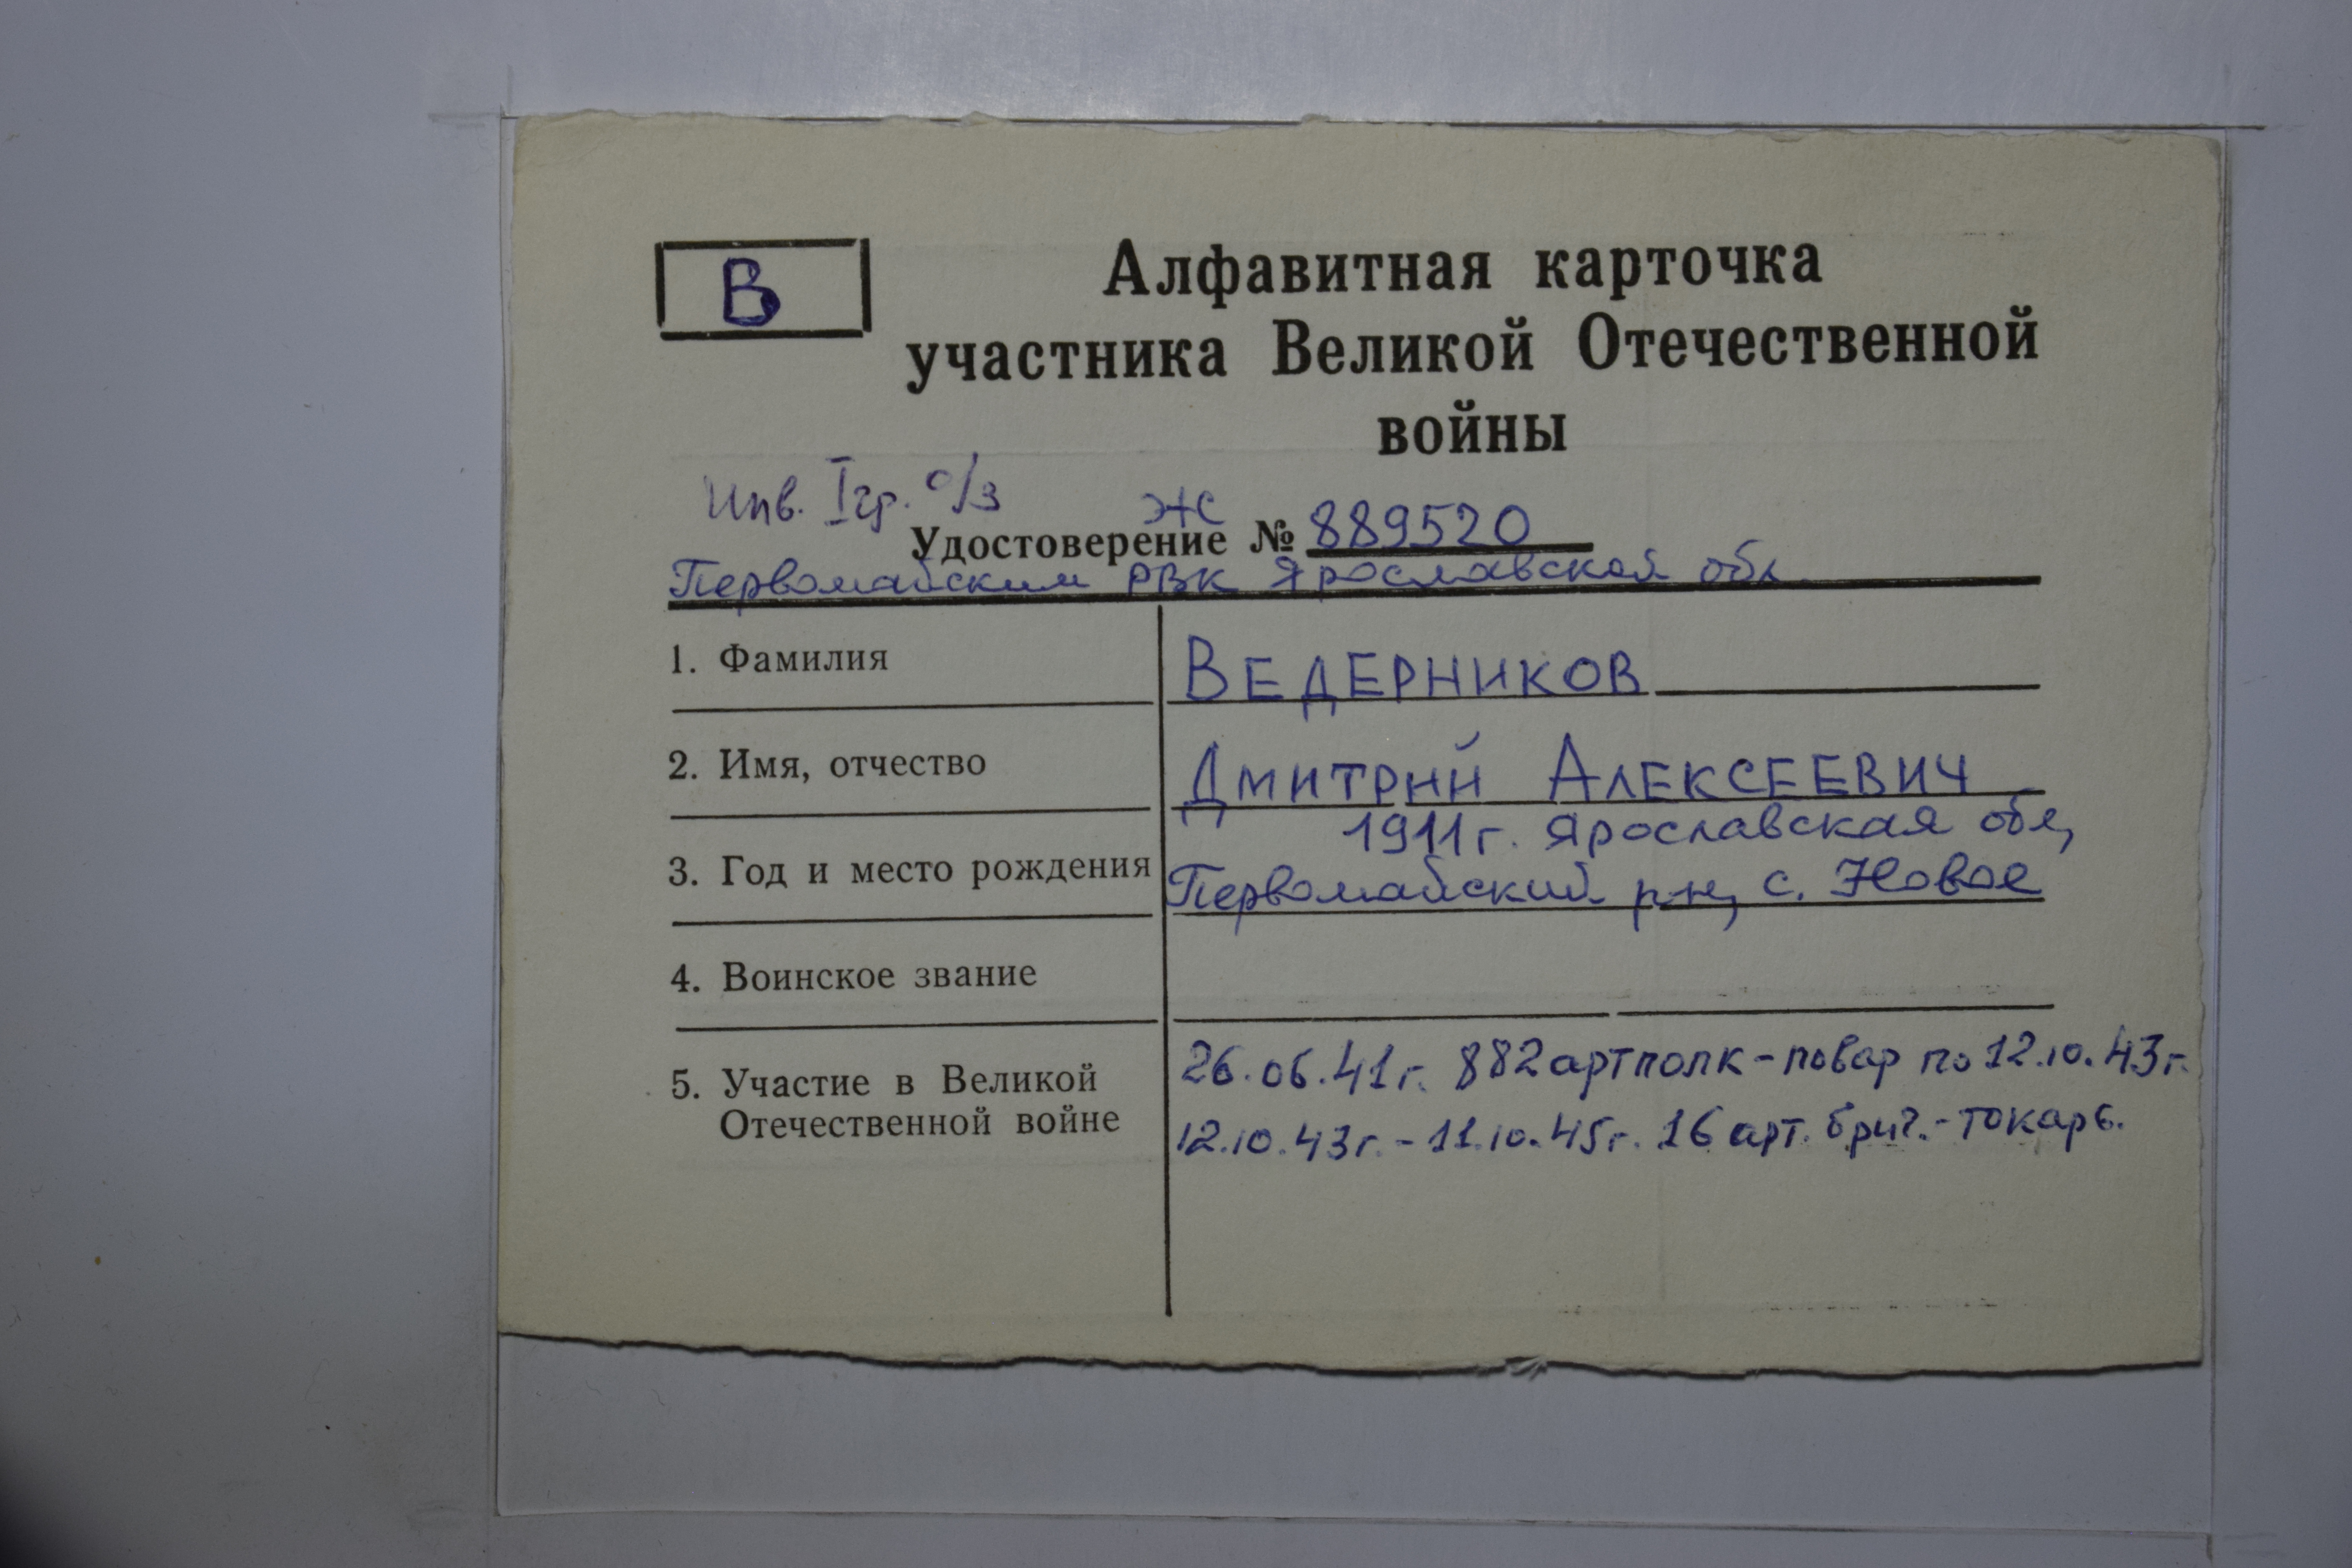 В
Алфавитная карточка
участника Великой Отечественной
войны
Инв. I гр. о/з
Ж
Удостоверение № 889520
Первомайским РВК Ярославской обл.
1. Фамилия ВЕДЕРНИКОВ
2. Имя, отчество ДМИТРИЙ АЛЕКСЕЕВИЧ
1911г. Ярославская обл,
3. Год и место рождения Первомайский р-н, с. Новое
4. Воинское звание
26.06.41г. 882 артполк-повар по 12.10.43г.
5. Участие в Великой
Отечественной войне 12.10.43г.-11.10.45г. 16 арт. бриг.-токарь.